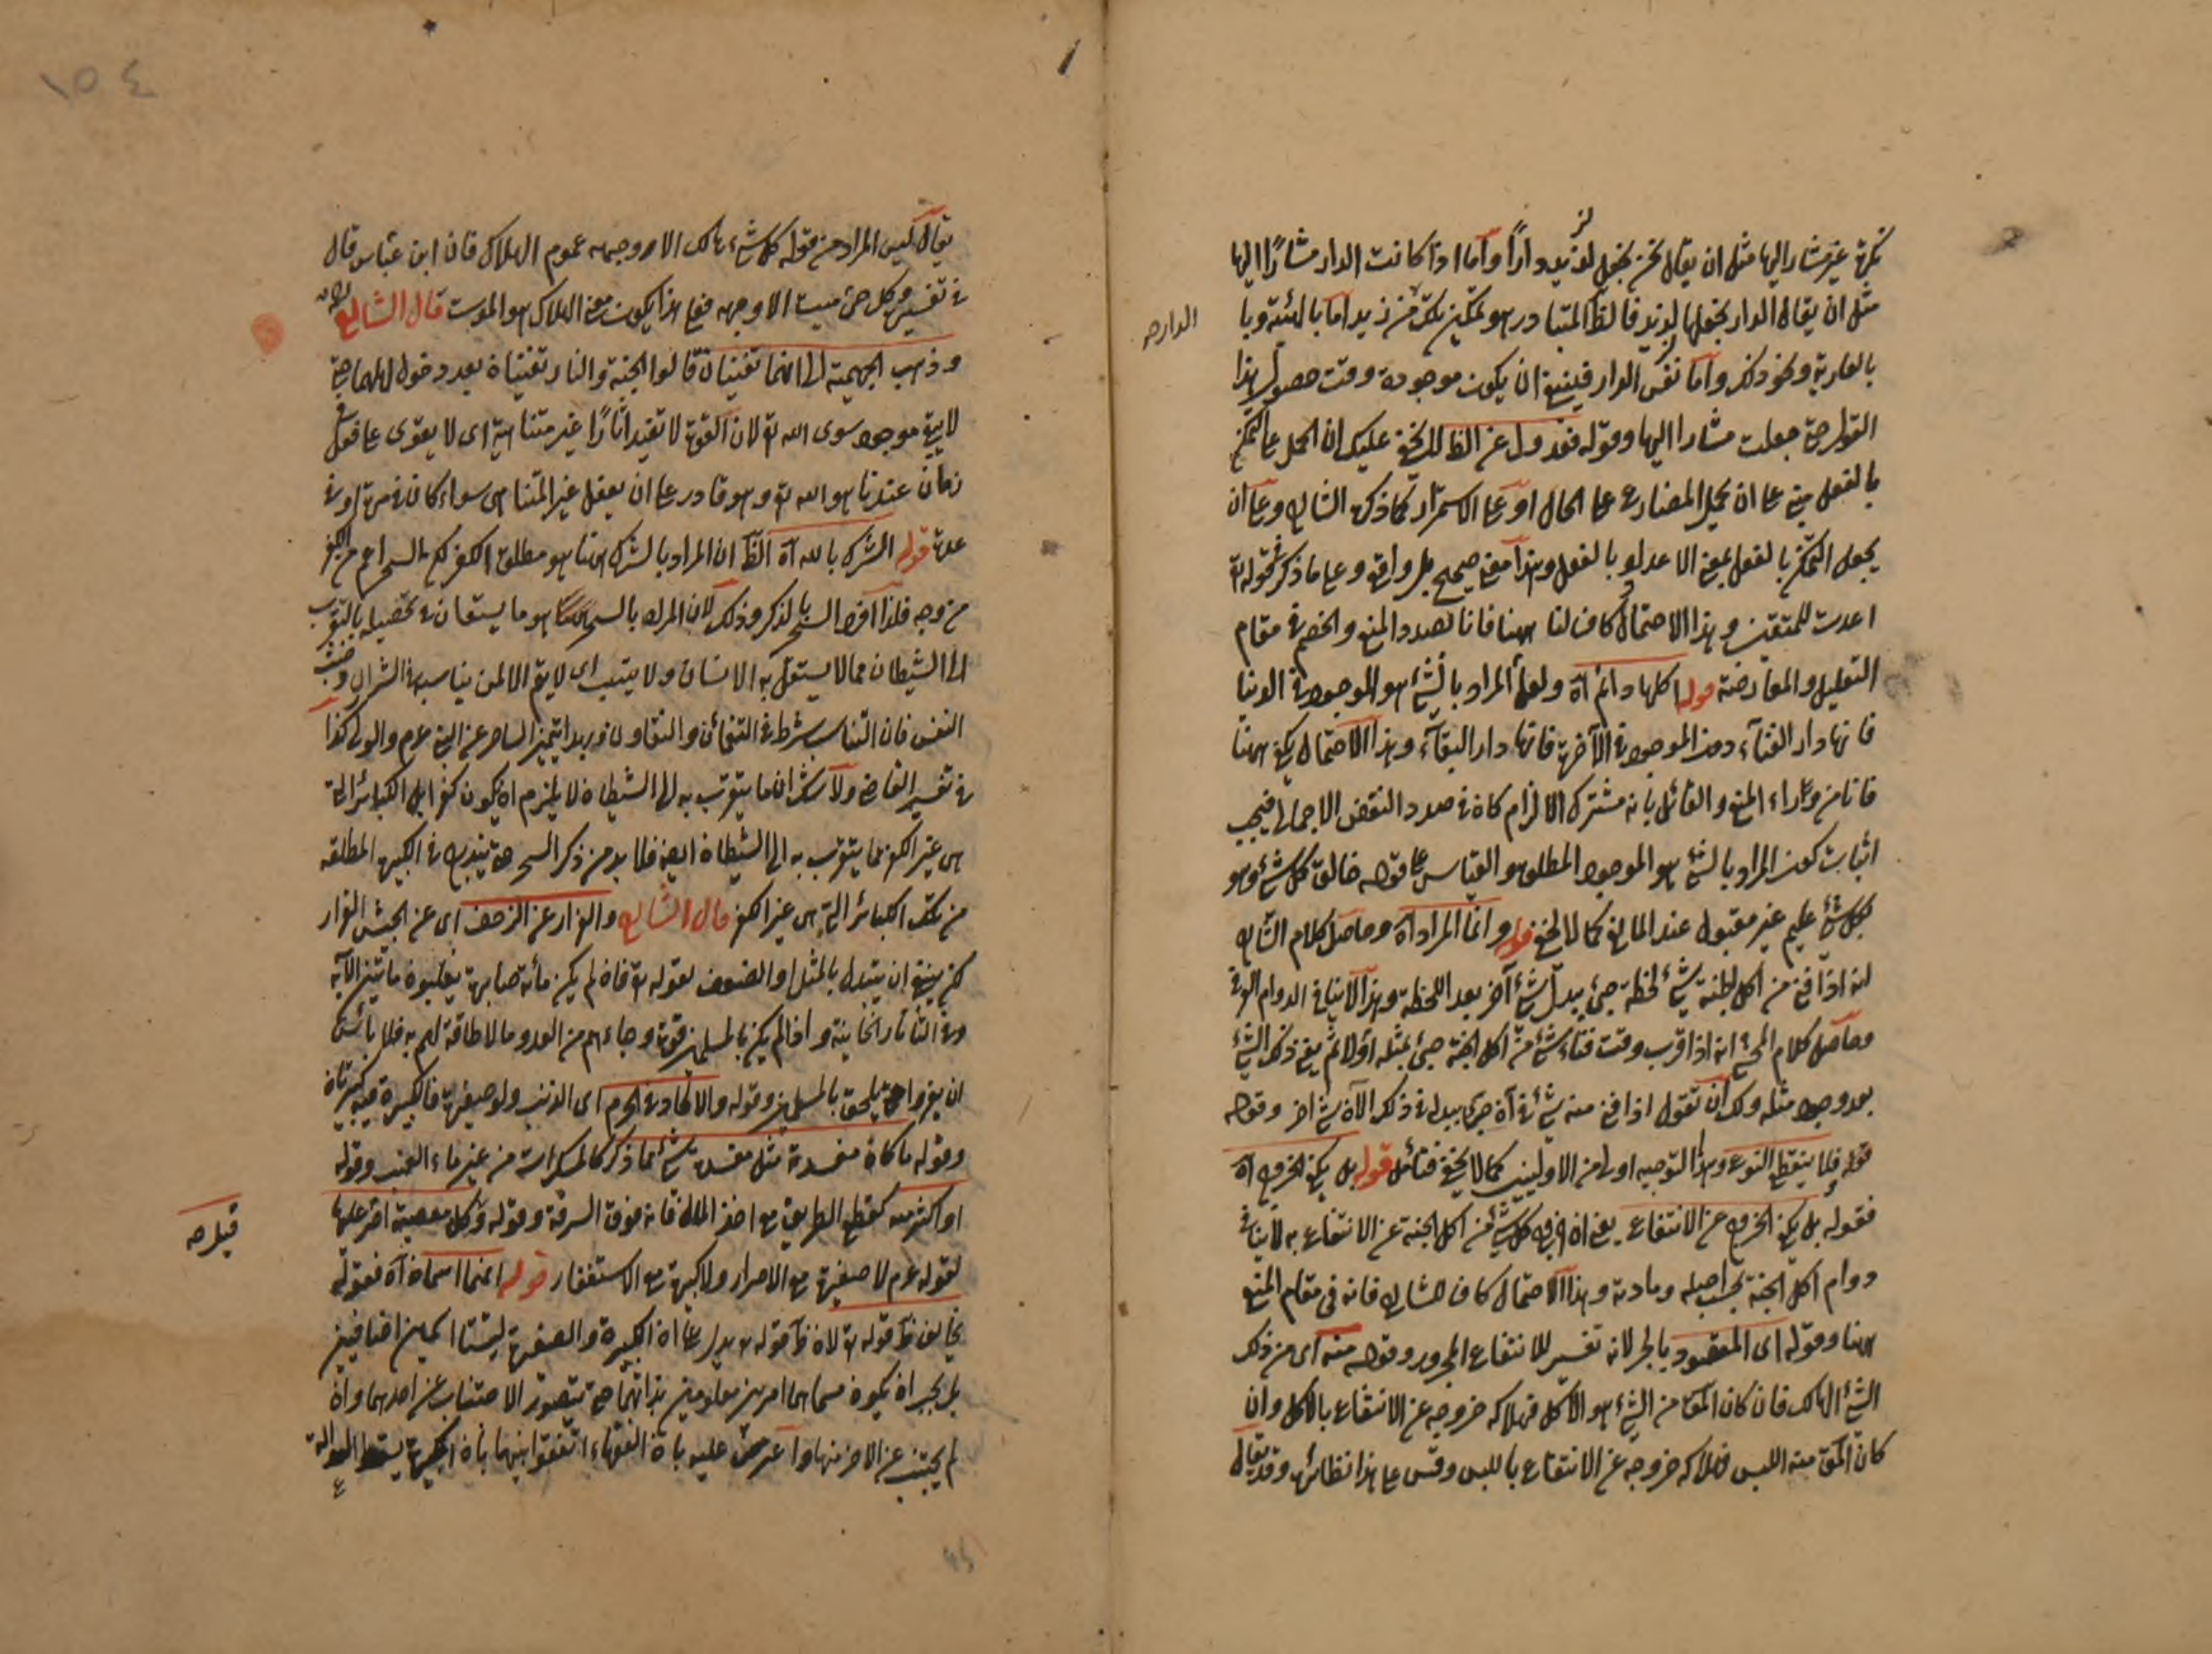 نكرة غير مشار اليها مثل ان يقال نحن نجعل لزيد دارًا وأما اذا كانت الدار مشارًا اليها
مثل ان يقال الدار نجعلها لزيد فالظ المتبادر هو تمكين زيد اما بالهبة و يا
بالعارية ونحو ذلك وأما نفس الدار فينبغي ان يكون موجودة وقت حصول هذا
القول حتى جعلت مشارا اليها وقوله فعدول عن الظ لا يخفى عليك ان الحمل على التمكن
بالفعل مبني على ان يحمل المضارع على الحال او على الاستمرار كما ذكره الشارح وعلى ان
يجعل التمكن بالفعل بمعنى الاعداد بالفعل وهذا معنى صحيح وعلى ما ذكر في قوله تع
اعدت للمتقين وهذا الاحتمال كاف لنا ههنا فانا بصدد المنع والخصم في مقام
التعليل والمعارضة قوله اكلها دائم آه ولعل المراد بالشئ هو الموجود في الدنيا
فانها دار الفناء دون الموجود في الآخرة فانها دار البقاء وهذا الاحتمال يكفي ههنا
فانا من وراء المنع والقائل بانه مشترك الالزام كان في صدد النقض الاجمالي فيجب
اثبات كون المراد بالشئ هو الموجود المطلق والقياس على قوله خالق كل شئ وهو
بكل شئ عليم غير مقبول عند المانع كما لا يخفى قوله وانما المراد آه وحاصل كلام الشارح
انه اذا فنى من اكل الجنة شئ لحظة جئ ببدل شئ آخر بعد اللحظة وهذا لا ينافي الدوام العرفي
وحاصل كلام المحشي انه اذا قرب وقت فناء شئ من اكل الجنة جئ بمثله اولا ثم يفنى ذلك الشئ
بعد وجود مثله ولك ان تقول اذا فنى منه شئ في آن جئ ببدله في ذلك الآن شئ اخر وقوله
قوله فلا ينقطع النوع وهذا التوجيه اولى من الاولين كما لا يخفى فتأمل قوله بل يكفي الخروج آه
فقوله بل يكفي الخروج عن الانتفاع يعني ان خروج كل شئ من اكل الجنة عن الانتفاع به لا ينافي
دوام اكل الجنة بحسب اصله ومادته وهذا الاحتمال كاف للشارح فانه في مقام المنع
ههنا وقوله اى المقصود بالجر لانه تفسير للانتفاع المجرور وقوله منه اى من ذلك
الشئ الهالك فان كان المقص من الشئ هو الاكل فهلاكه خروجه عن الانتفاع بالاكل وان
كان المقص منه اللبس فهلاكه خروجه عن الانتفاع باللبس وقس على هذا نظائرها وقد يقال
الدار صح
١٥٤
يقال ليس المراد من قوله كل شئ هالك الا وجهه عموم الهلاك فان ابن عباس قال
في تفسيره كل حى ميت الا وجهه فعلى هذا يكون معنى الهلاك هو الموت قال الشارح
وذهب الجهمية الى انهما تفنيان قالوا الجنة والنار تفنيان بعد دخول اهلهما حتى
لا يبقى موجود سوى الله تع لان القوة لا تفيد اثارًا غير متناهية اى لا يقوى على فعل
زمان عندنا هو الله تع وهو قادر على ان يفعل غير المتناهى سواء كان في مدة او في
عدة قوله الشرك بالله آه الظ ان المراد بالشرك ههنا هو مطلق الكفر لكن السحر اعم من الكفر
من وجه فلذا افرد السحر بالذكر وذلك لان المراد بالسحر ههنا هو ما يستعان في تحصيله بالتقرب
الى الشيطان مما لا يستقل به الانسان ولا يتيب اى لا يتم الا لمن يناسبه في الشرارة وخبث
النفس فان التناسب شرط في التضامن والتعاون وبهذا تميز الساحر عن النبي عم والولي كذا
في تفسير القاضي ولا شك ان ما يتقرب به الى الشيطان لا يلزم ان يكون كفرا بل الكبائر التي
هى غير الكفر مما يتقرب به الى الشيطان ايضا فلا بد من ذكر السحر حتى يندرج في الكبيرة المطلقة
من تلك الكبائر التي هى غير الكفر قال الشارح والفرار عن الزحف اى عن الجيش الفرار
لكن ينبغي ان يتبدل بالمثل او الضعف لقوله تع فان لم يكن مائة صابرة يغلبوا مائتين الآية
وفي التاتارخانية واذا لم يكن بالمسلمين قوة وجاءهم من العدو ما لا طاقة لهم به فلا بأس
ان يفروا حتى يلحق بالمسلمين وقوله والالحاد في الحرم اى الذنب ولو صغيرة فالكبيرة فيه كبيرتان
وقوله ما كان مفسدته مثل مفسدة شئ مما ذكر كالمسكرات من غير ماء العنب وقوله
او اكثر منه كقطع الطريق مع اخذ المال فانه فوق السرقة وقوله وكل معصية اصر عليها
لقوله عم لا صغيرة مع الاصرار ولا كبيرة مع الاستغفار قوله انهما اسمان آه فقوله
يخالف ظ قوله تع لان ظ قوله تع يدل على ان الكبيرة والصغيرة ليستا اسمين اضافيين
بل يجب ان يكون مسماهما امرين معلومين بذاتهما حتى يتصور الاجتناب عن احدهما وان
لم يجتنب عن الاخر منها واعترض عليه بان الفقهاء اتفقوا بينهما بان الكبيرة يسقط العدالة
قيل صح